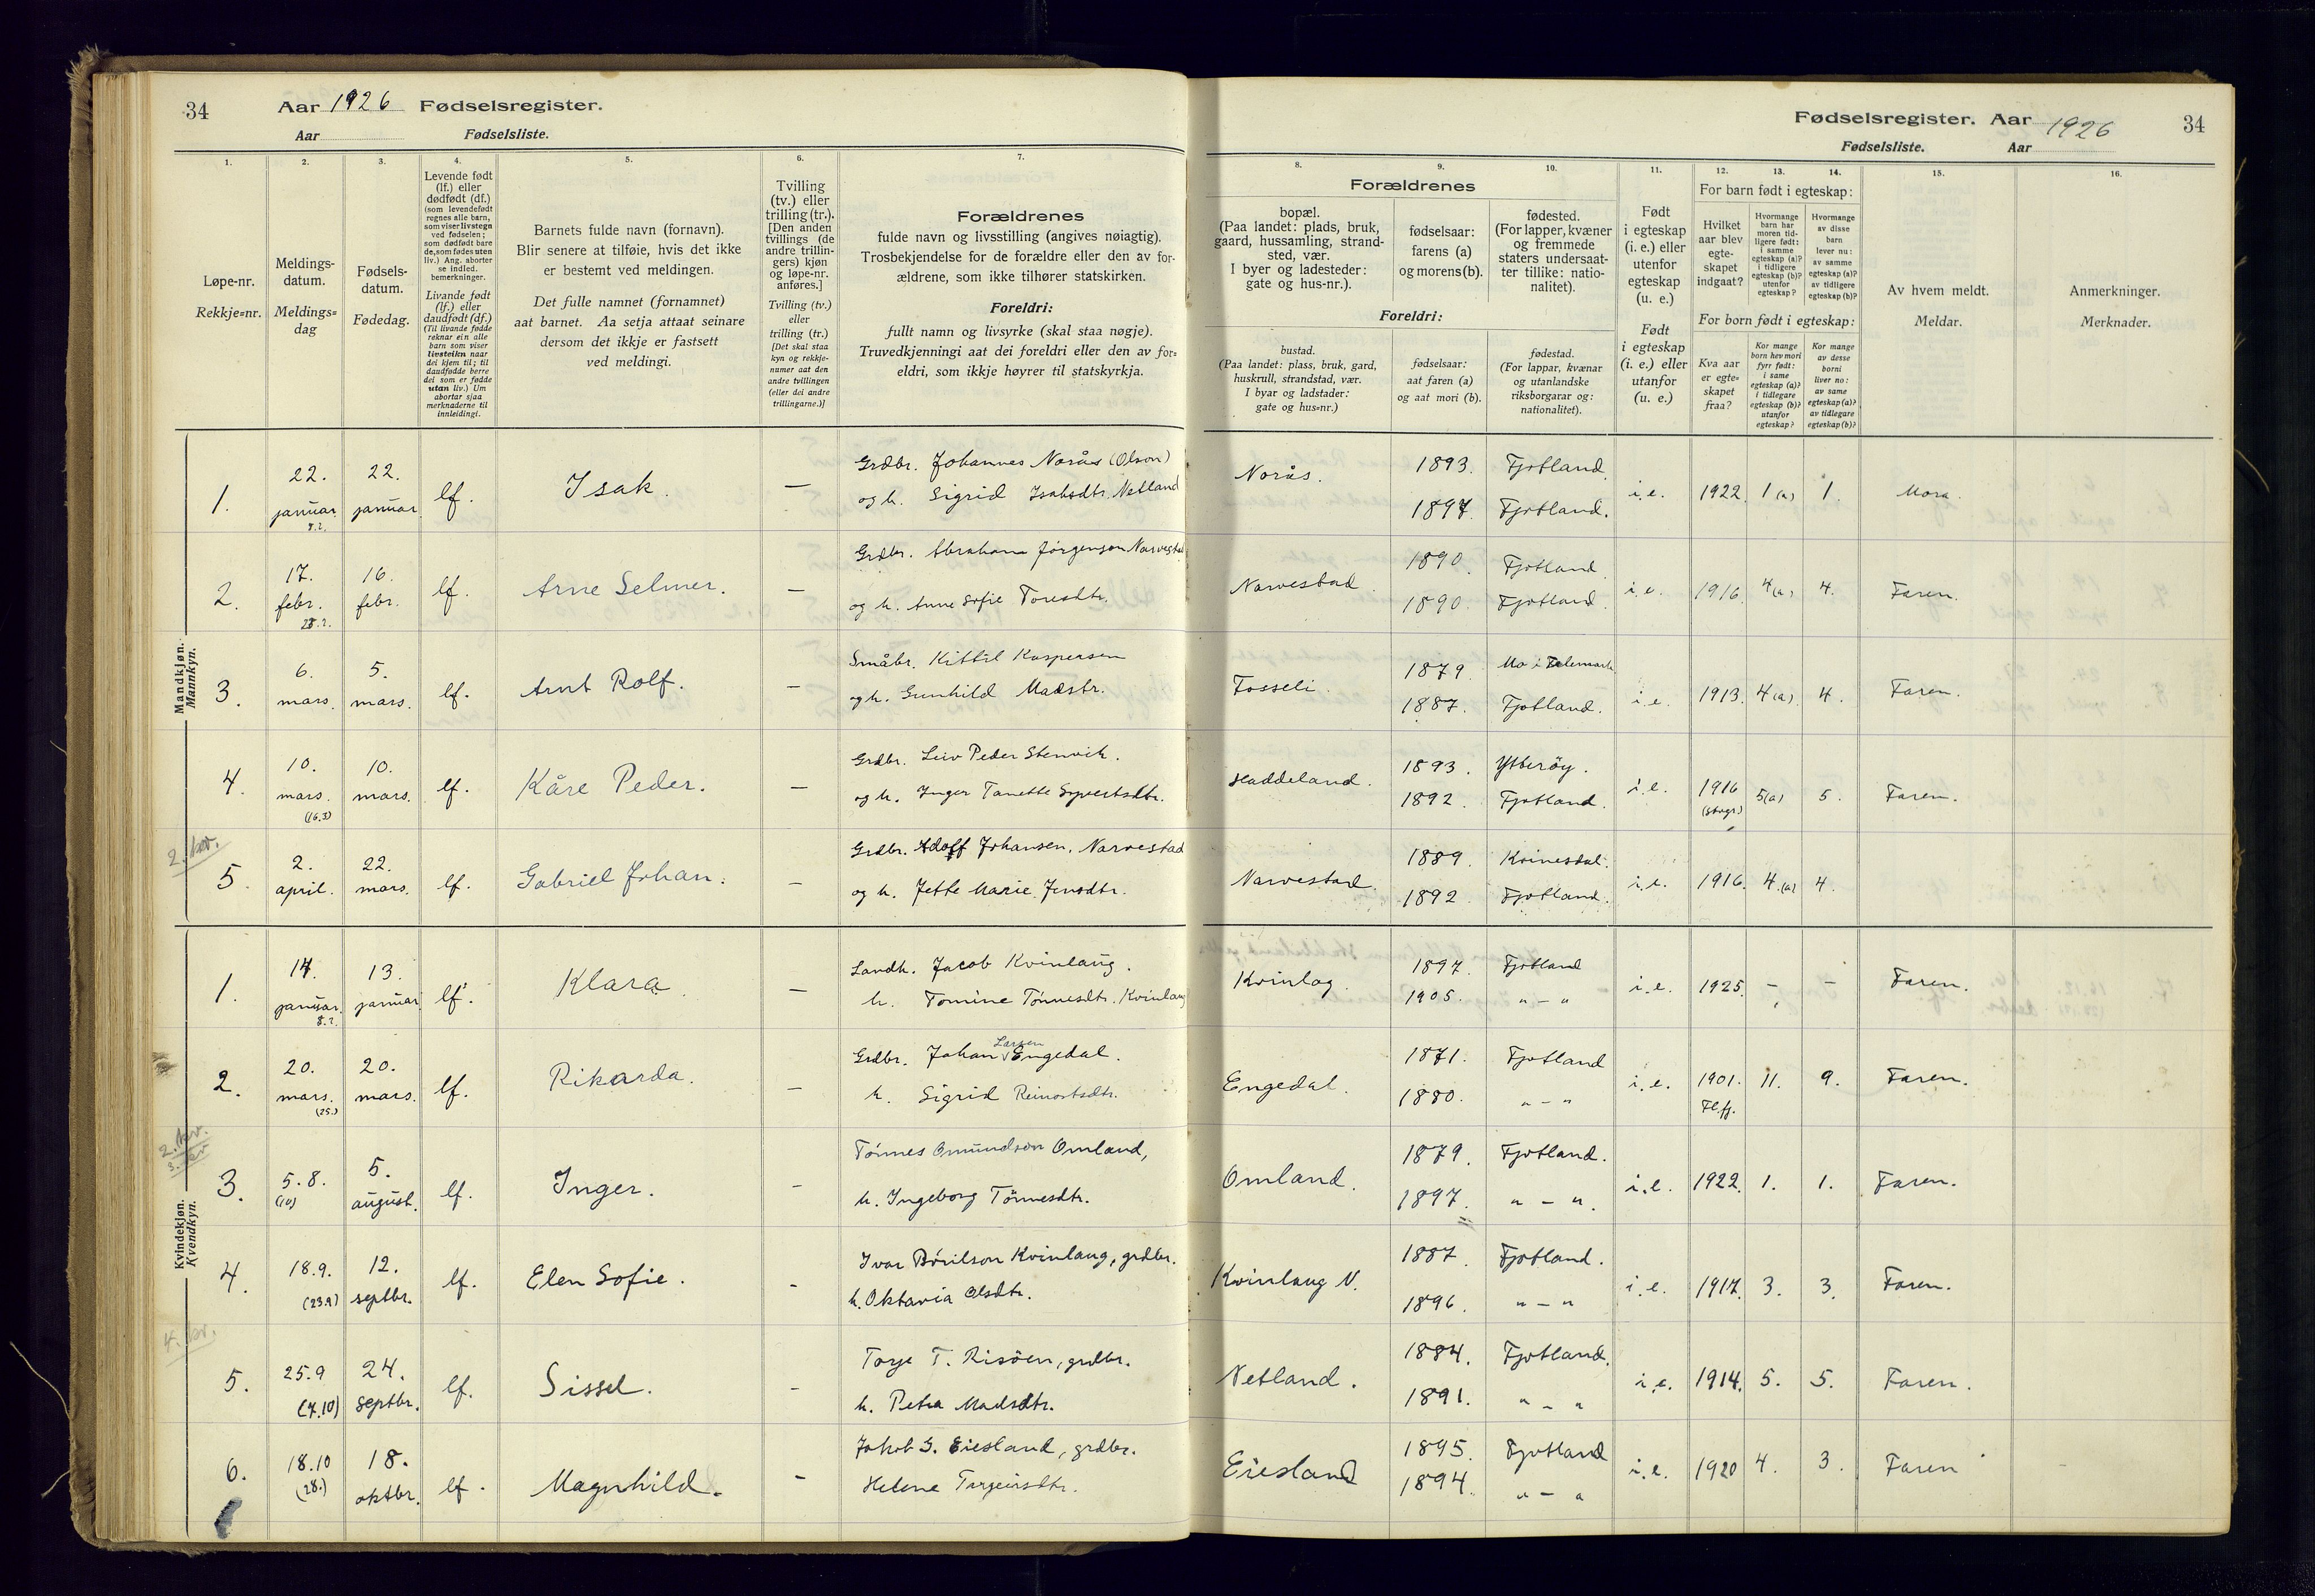 34
Aar 1926 Fødselsregister.
Aar Fødselsliste.
Fødselsregister. Aar 1926
34
Fødselsliste. Aar
1.
Løpe-nr.
Rekkje=nr.
2.
Meldings-
datum.
Meldings=
dag
3.
Fødsels-
datum.
Fødedag.
4.
Levende født
(lf.) eller
dødfødt (df.)
(som levendefødt
regnes alle barn,
som viser livstegn
ved fødselen;
som dødfødt bare
de, som fødes uten
liv.) Ang. aborter
se indled.
bemerkninger.
Livande født
(lf.) eller
daudfødt (df.)
(Til livande fødde
reknar ein alle
barn som viser
livsteikn naar
dei kjem til; til
daudfødde berre
dei som er fødde
utan liv.) Um
abortar sjaa
merknaderne til
innleidingi.
5.
Barnets fulde navn (fornavn).
Blir senere at tilføie, hvis det ikke
er bestemt ved meldingen.
Det fulle namnet (fornamnet)
aat barnet. Aa setja attaat seinare
dersom det ikkje er fastsett
ved meldingi.
6.
Tvilling
(tv.) eller
trilling (tr.).
[Den anden
tvillings (de
andre trillin-
gers) kjøn
og løpe-nr.
anføres.]
Tvilling (tv.)
eller
trilling (tr.)
[Det skal staa
kyn og rekkje-
numer aat den
andre tvillingen
(eller dei andre
trillingarne.)]
7.
Forældrenes
fulde navn og livsstilling (angives nøiagtig).
Trosbekjendelse for de forældre eller den av for-
ældrene, som ikke tilhører statskirken.
Foreldri:
fullt namn og livsyrke (skal staa nøgje).
Truvedkjenningi aat dei foreldri eller den av for=
eldri, som ikkje høyrer til statskyrkja.
8. 9. 10.
Forældrenes
bopæl.
(Paa landet: plads, bruk,
gaard, hussamling, strand-
sted, vær.
I byer og ladesteder:
gate og hus-nr.).
fødselsaar:
farens (a)
og morens (b).
fødested.
(For lapper, kvæner
og fremmede
staters undersaat-
ter tillike: natio-
nalitet).
Foreldri:
bustad.
(Paa landet: plass, bruk, gard,
huskrull, strandstad, vær.
I byar og ladstader:
gate og hus=nr.)
fødselsaar:
aat faren (a)
og aat mori (b).
fødestad.
(For lappar, kvænar
og utanlandske
riksborgarar og:
nationalitet).
11.
Født
i egteskap
(i. e.) eller
utenfor
egteskap
(u. e.)
Født
i egteskap
(i. e.) eller
utanfor
(u. e.)
12. 13. 14.
For barn født i egteskap:
Hvilket
aar blev
egte-
skapet
indgaat?
Hvormange
barn har
moren tid-
ligere født:
i samme
egteskap (a)?
i tidligere
egteskap (b)?
utenfor
egteskap?
Hvormange
av disse
barn
lever nu:
av samme
egteskap (a)?
av tidligere
egteskap (b)?
For born født i egteskap:
Kva aar
er egte=
skapet
fraa?
Kor mange
born hev mori
fyrr født:
i same
egteskap (a)?
i tidlegare
egteskap (b)?
utanfor
egteskap?
Kor mange
av desse
borni
liver no:
av same
egteskap (a)?
av tidlegare
egteskap (b)?
15.
Av hvem meldt.
Meldar.
16.
Anmerkninger.
Merknader.
Mandkjøn.
Mannkyn.
1. 22. januar 8.2. 22. januar lf. Isak. — Grdbr. Johannes Norås (Olson)
og h. Sigrid Isaksdtr. Netland
Norås. 1893. Fjotland
1897. Fjotland. i.e. 1922. 1 (a) 1. Mora.
2. 17. febr. 16. febr. lf. Arne Selmer. — Grdbr. Abraham Jørgenson Narvestad
og h. Anne Sofie Toresdtr.
Narvestad 1890. Fjotland
1890. Fjotland. i.e. 1916. 4 (a) 4. Faren.
3. 6. mars. 5. mars. lf. Arnt Rolf. — Småbr. Kittil Kaspersen
og h. Gunhild Madstr.
Fosseli. 1879. Mo i Telemark
1887. Fjotland. i.e. 1913. 4 (a) 4. Faren.
4. 10. mars. (16.3) 10. mars. lf. Kåre Peder. — Grdbr. Leiv Peder Stenvik.
og h. Inger Tanette Syvertsdtr.
Haddeland. 1893. Ytterøy.
1892. Fjotland. i.e. 1916 5 (a) 5. Faren.
2. kv.
5. 2. april. 22. mars. lf. Gabriel Johan. — Grdbr. Adolf Johansen, Narvestad
og h. Jette Marie Jensdtr.
Narvestad. 1889. Kvinesdal.
1892. Fjotland. i.e. 1916. 4. (a) 4.
Kvindekjøn.
Kvendkyn.
1. 14. januar. 8.2. 13. januar lf. Klara. — Landh. Jacob Kvinlaug.
h. Tomine Tønnesdtr. Kvinlaug
Kvinlog. 1897. Fjotland
1905. " — " i.e. 1925. — — Faren.
2. 20. mars. (25.) 20. mars. lf. Rikarda. — Grdbr. Johan Larsen Engedal.
h. Sigrid Reinertsdtr.
Engedal. 1871. Fjotland
1880. " — " i.e. 1901. 11. 9. Faren.
Fl.fj.
2. kv.
3. kv
3. 5.8. (10) 5. august. lf. Inger. - Tønnes Omundson Omland,
h. Ingeborg Tønnesdtr.
Omland. 1879. Fjotland.
1897. " — ". i.e. 1922. 1. 1. Faren.
4. 18.9. (23.9) 12. septbr. lf. Elen Sofie. - Ivar Bórilson Kvinlaug, grdbr.
h. Oktavia Olsdtr.
Kvinlaug N. 1887. Fjotland.
1896. " — " i.e. 1917. 3. 3. Faren.
4. kv.
5. 25.9 (7.10) 24. septbr. lf. Sissel. - Torje T. Risöen, grdbr.
h. Petra Madsdtr.
Netland. 1884. Fjotland.
1891. " — " i.e. 1914. 5. 5. Faren.
6. 18.10 (28.) 18. oktbr. lf. Magnhild. - Jakob G. Eiesland, grdbr.
Helene Torgeirsdtr.
Eiesland 1895. Fjotland
1894. " — " i.e. 1920 4. 3. Faren